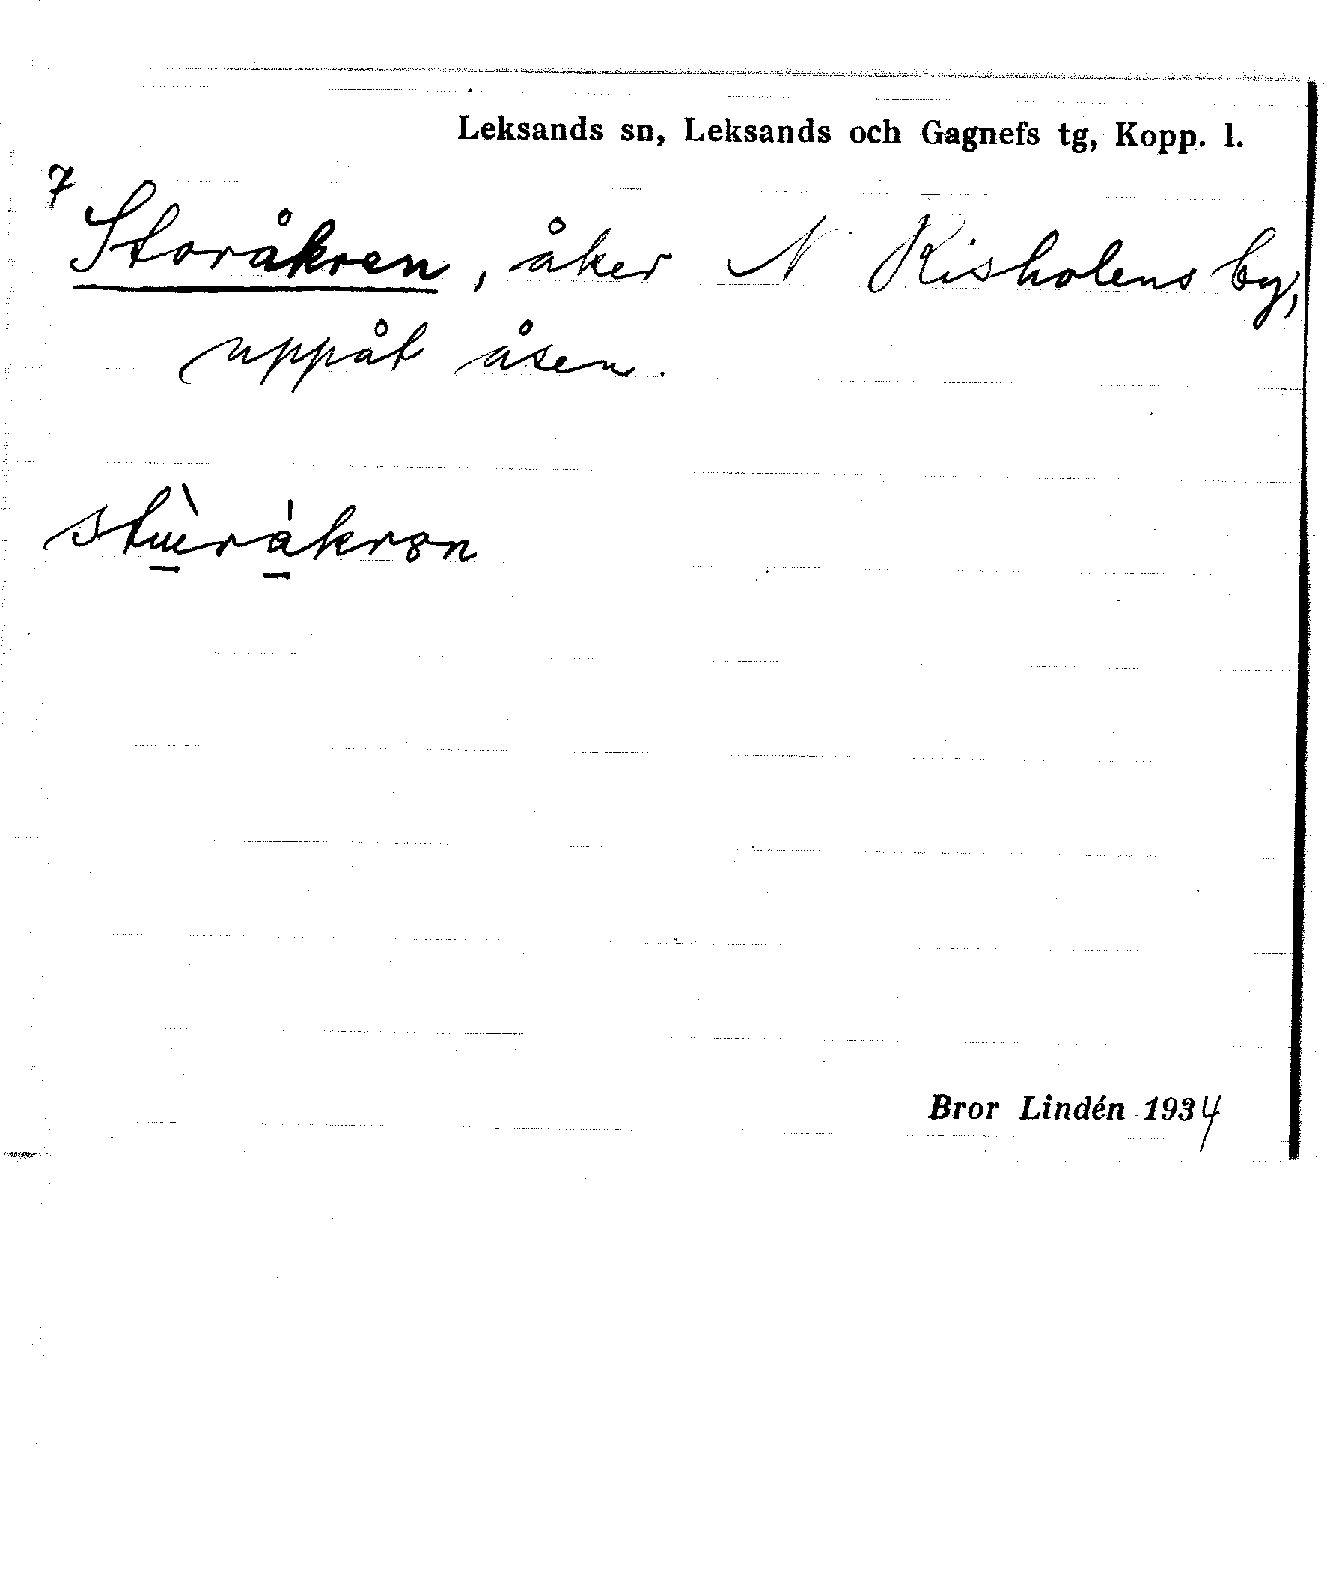 Leksands sn, Leksands och Gagnefs tg, Kopp. l.
7
Storåkren, åker N Risholens by,
uppåt åsen.
stù̲rá̲krøn
Bror Lindén 1934